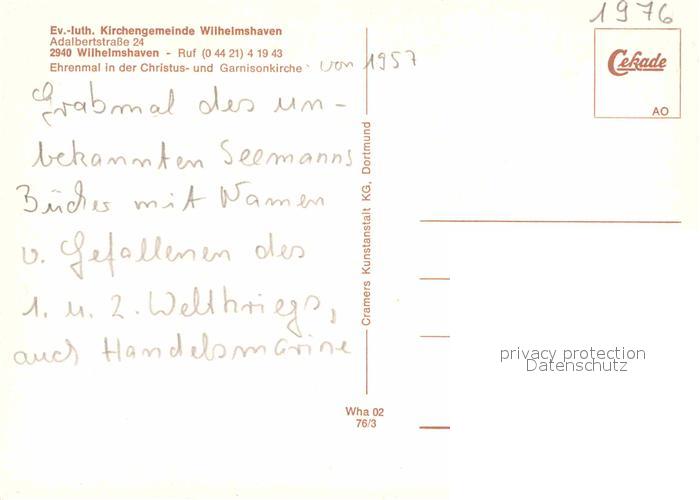 1976
Ev.-luth. Kirchengemeinde Wilhelmshaven
Adalbertstraße 24
2940 Wilhelmshaven - Ruf (0 44 21) 4 19 43
Ehrenmal in der Christus- und Garnisonkirche von 1957
Grabmal des un-
bekannten Seemanns
Bücher mit Namen
v. Gefallenen des
1. u. 2. Weltkriegs,
auch Handelsmarine
Cekade
AO
Cramers Kunstanstalt KG, Dortmund
Wha 02
76/3
privacy protection
Datenschutz